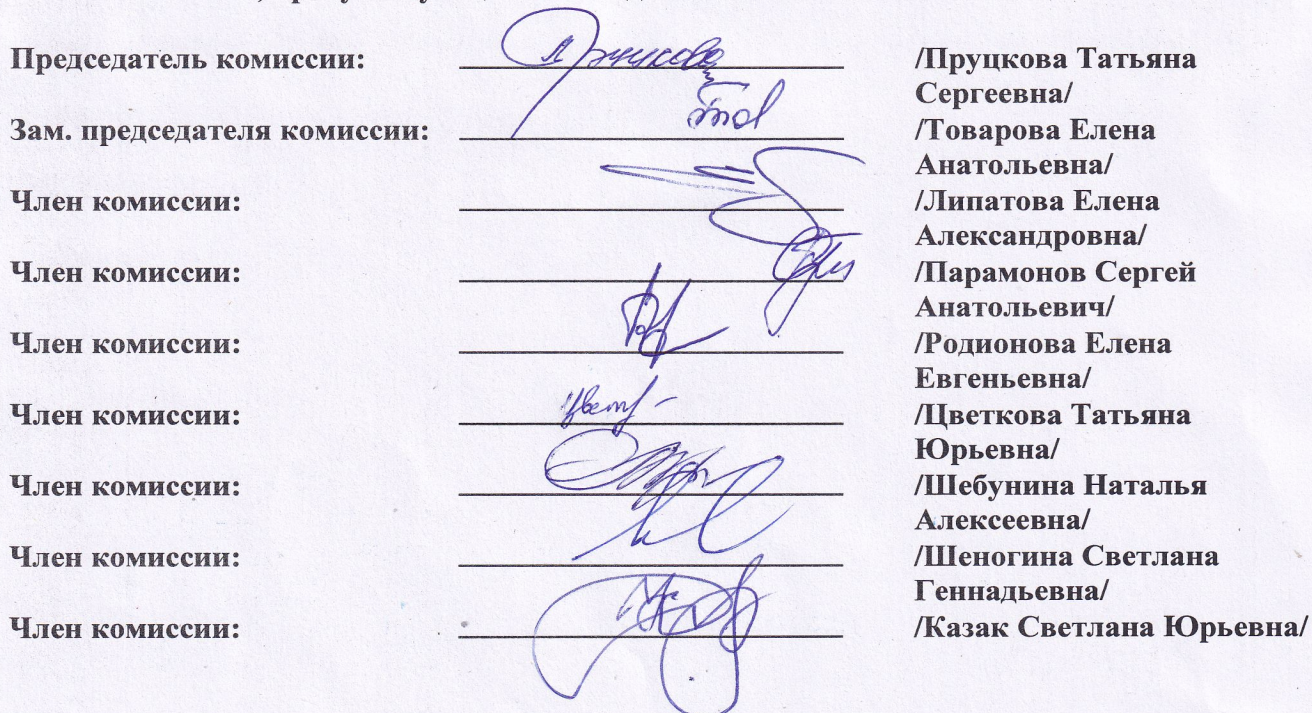 Председатель комиссии: /Пруцкова Татьяна
Сергеевна/
Зам. председателя комиссии: /Товарова Елена
Анатольевна/
Член комиссии: /Липатова Елена
Александровна/
Член комиссии: /Парамонов Сергей
Анатольевич/
Член комиссии: /Родионова Елена
Евгеньевна/
Член комиссии: /Цветкова Татьяна
Юрьевна/
Член комиссии: /Шебунина Наталья
Алексеевна/
Член комиссии: /Шеногина Светлана
Геннадьевна/
Член комиссии: /Казак Светлана Юрьевна/